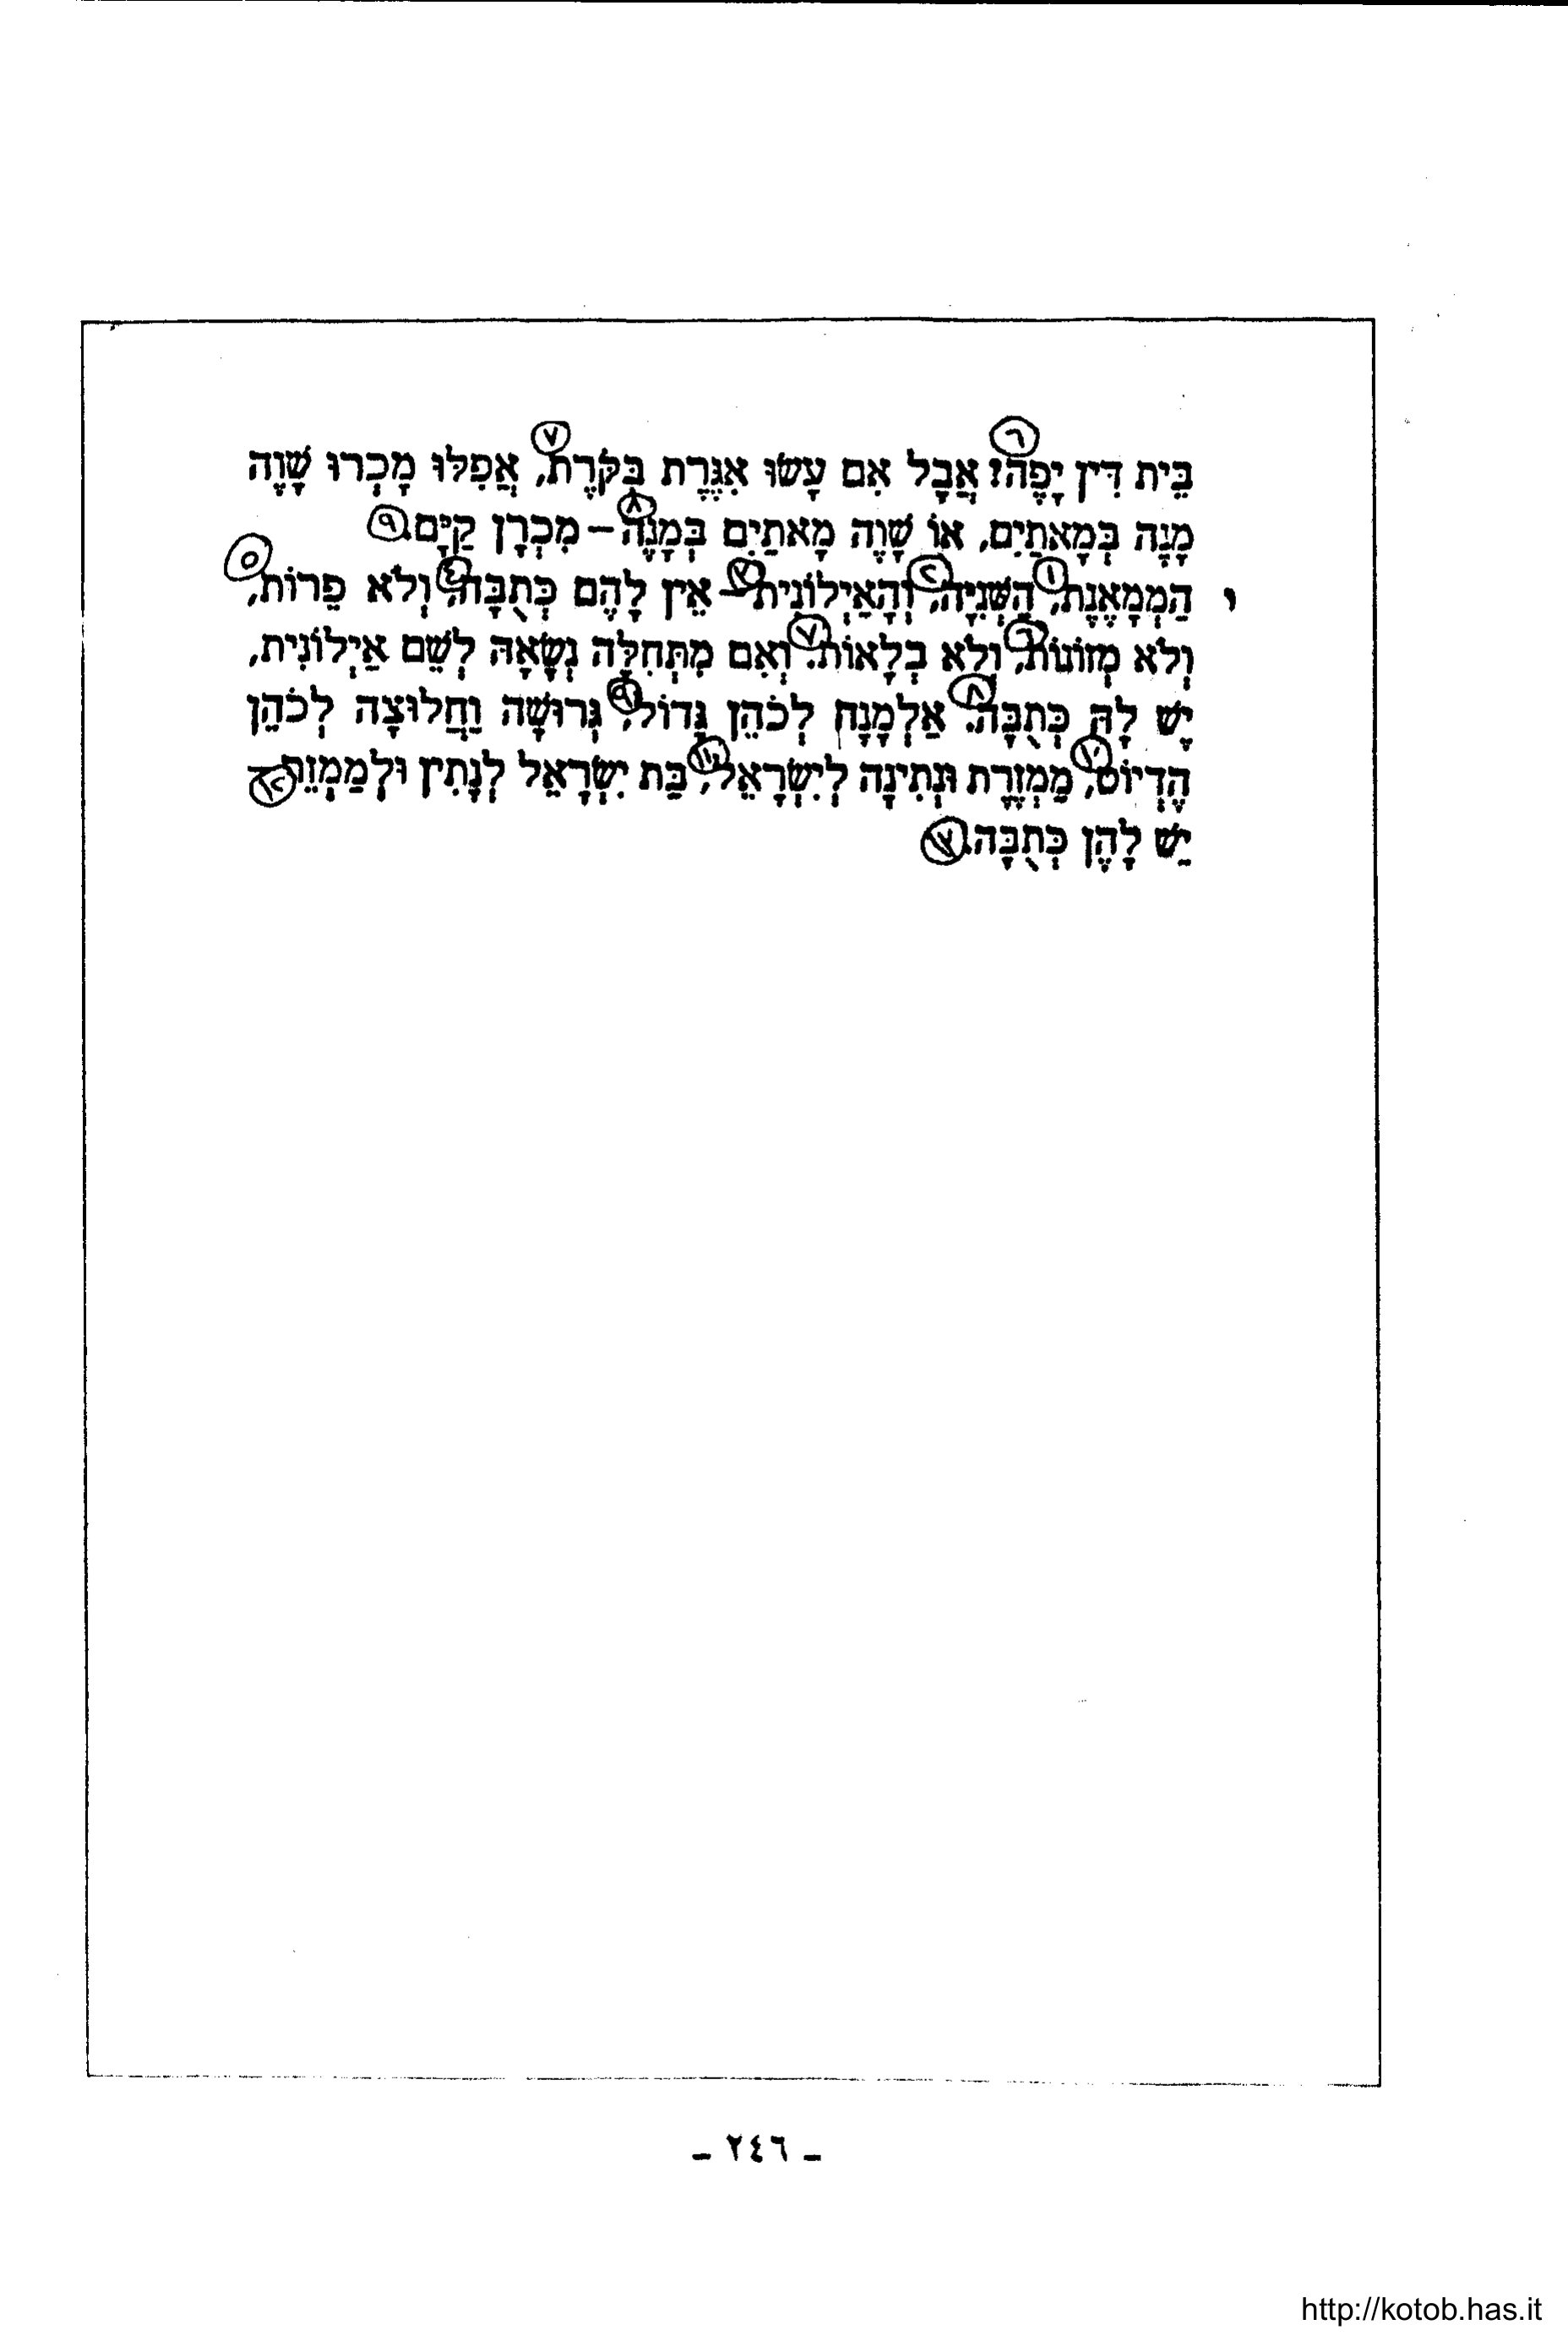 בֵּית דִּין יָפֶה? (٦) אֲבָל אִם עָשׂוּ אִגֶּרֶת בִּקֹּרֶת, (٧) אֲפִלּוּ מָכְרוּ שָׁוֶה
מָנֶה בְּמָאתַיִם, אוֹ שָׁוֶה מָאתַיִם בְּמָנֶה (٨) – מִכְרָן קַיָּם. (٩)
ו הַמְמָאֶנֶת, (١) הַשְּׁנִיָּה, (٢) וְהָאַיְלוֹנִית (٣) – אֵין לָהֶם כְּתֻבָּה, (٤) וְלֹא פֵרוֹת, (٥)
וְלֹא מְזוֹנוֹת, (٦) וְלֹא בְלָאוֹת. (٧) וְאִם מִתְּחִלָּה נְשָׂאָהּ לְשֵׁם אַיְלוֹנִית,
יֶשׁ לָהּ כְּתֻבָּה. (٨) אַלְמָנָה לְכֹהֵן גָּדוֹל, (٩) גְּרוּשָׁה וַחֲלוּצָה לְכֹהֵן
הֶדְיוֹט, (١٠) מַמְזֶרֶת וּנְתִינָה לְיִשְׂרָאֵל, (١١) בַּת יִשְׂרָאֵל לְנָתִין וּלְמַמְזֵר – (١٢)
יֵשׁ לָהֶן כְּתֻבָּה. (١٣)
– ٢٤٦ –
http://kotob.has.it